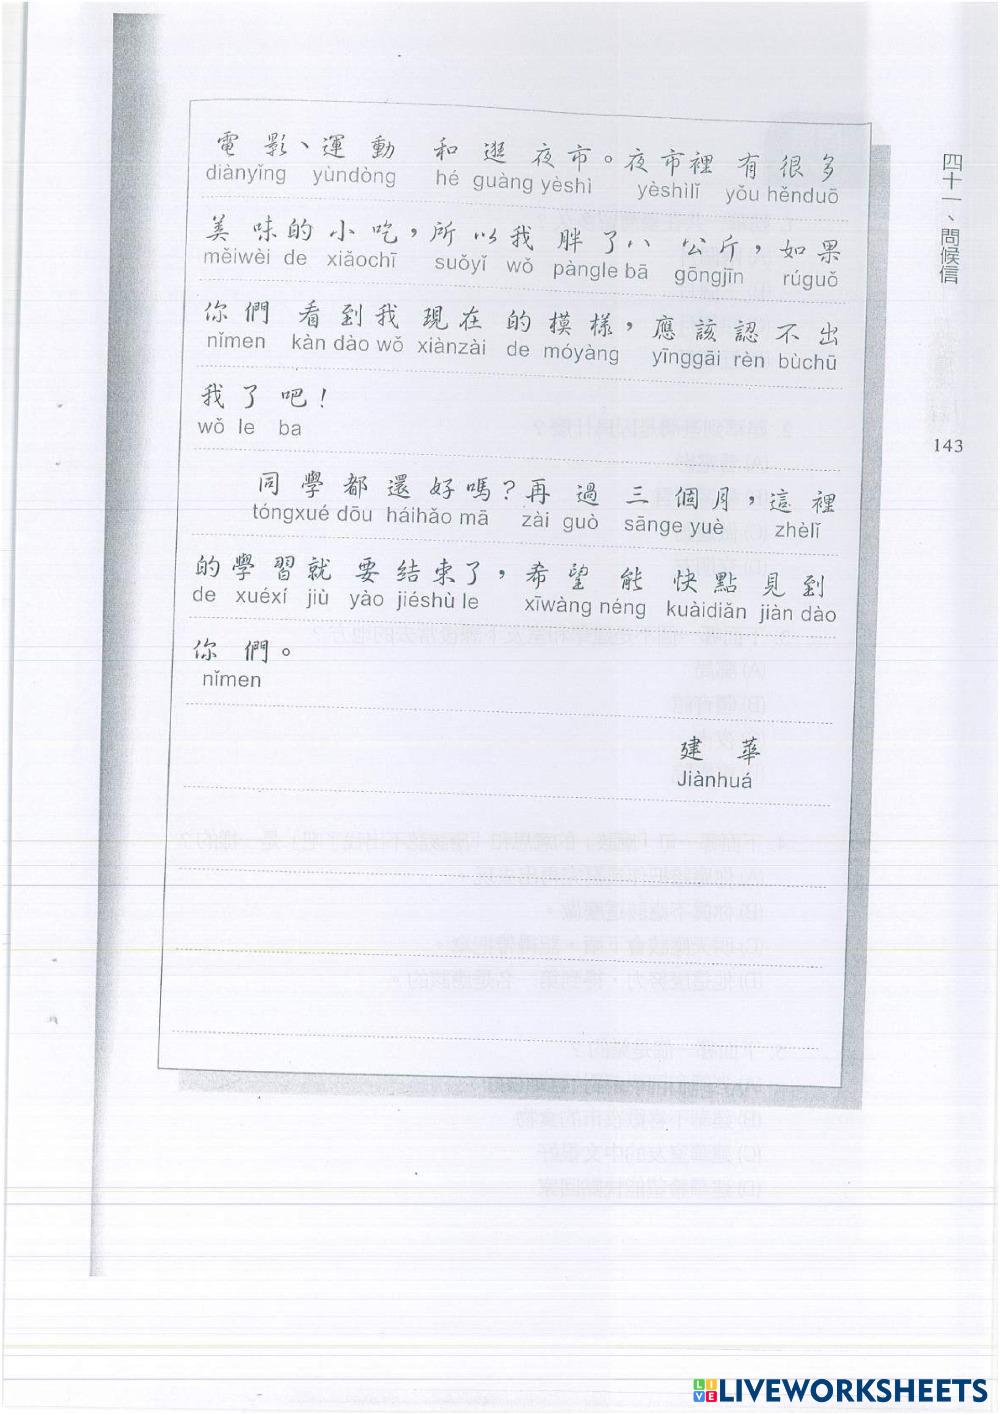 電影、運動 和逛夜市。夜市裡有很多
diànyǐng yùndòng hé guàng yèshì yèshìlǐ yǒu hěnduō
美味的小吃，所以我胖了八公斤，如果
měiwèi de xiǎochī suǒyǐ wǒ pàngle bā gōngjīn rúguǒ
你們看到我現在的模樣，應該認不出
nǐmen kàn dào wǒ xiànzài de móyàng yīnggāi rèn bùchū
我了吧！
wǒ le ba
同學都還好嗎？再過三個月，這裡
tóngxué dōu háihǎo mā zài guò sānge yuè zhèlǐ
的學習就要结束了，希望能快點見到
de xuéxí jiù yào jiéshù le xīwàng néng kuàidiǎn jiàn dào
你們。
nǐmen
建華
Jiànhuá
四十一、問候信
143
LIVEWORKSHEETS